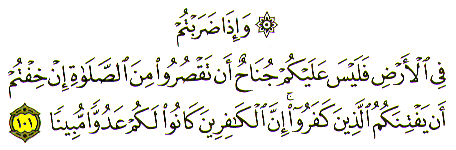 ۞ وَإِذَا ضَرَبْتُمْ
فِي ٱلْأَرْضِ فَلَيْسَ عَلَيْكُمْ جُنَاحٌ أَن تَقْصُرُوا۟ مِنَ ٱلصَّلَوٰةِ إِنْ خِفْتُمْ
أَن يَفْتِنَكُمُ ٱلَّذِينَ كَفَرُوٓا۟ ۚ إِنَّ ٱلْكَـٰفِرِينَ كَانُوا۟ لَكُمْ عَدُوًّا مُّبِينًا ١٠١